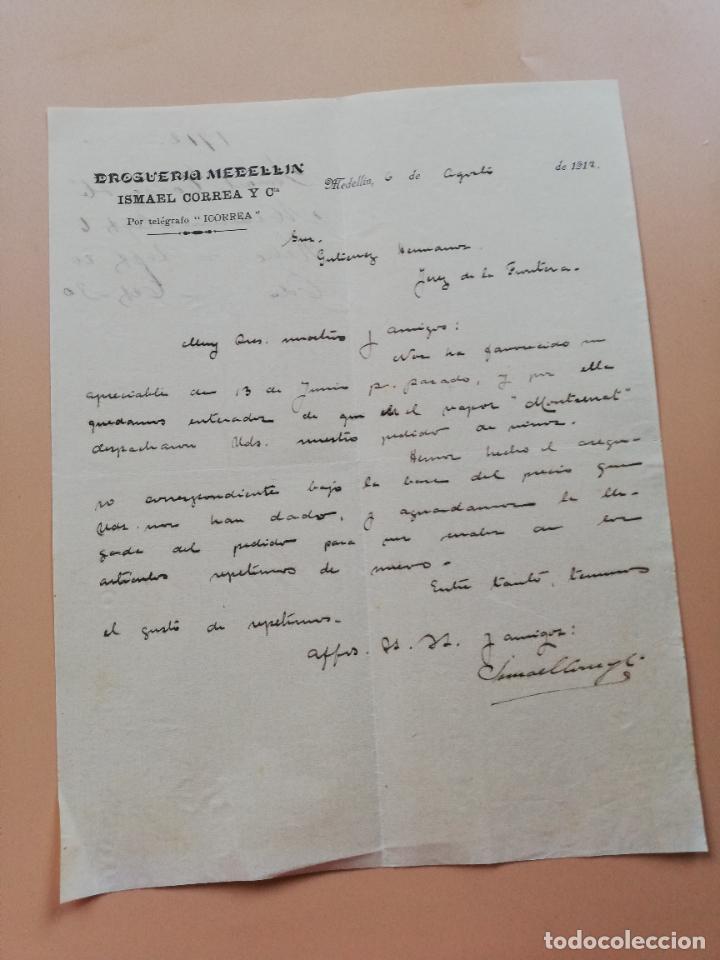 DROGUERIA MEDELLIN
ISMAEL CORREA Y Cía
Por telégrafo "ICORREA"
Medellín, 6 de Agosto de 1912.
Sres.
Gutierrez Hermanos.
Jerez de la Frontera.
Muy Sres. nuestros y amigos:
Nos ha favorecido su
apreciable de 13 de Junio p. pasado, y por ella
quedamos enterados de que el vapor "Montserrat"
despacharon Uds. nuestro pedido de vinos.
Hemos hecho el segu-
ro correspondiente bajo la base del precio que
Uds. nos han dado, y aguardamos la lle-
gada del pedido para ver de los
artículos repetimos de nuevo.
Entre tanto, tenemos
el gusto de repetirnos.
Affos. Ss. Ss. y amigos:
Ismael Correa y Cª
todocoleccion
todocoleccion.net